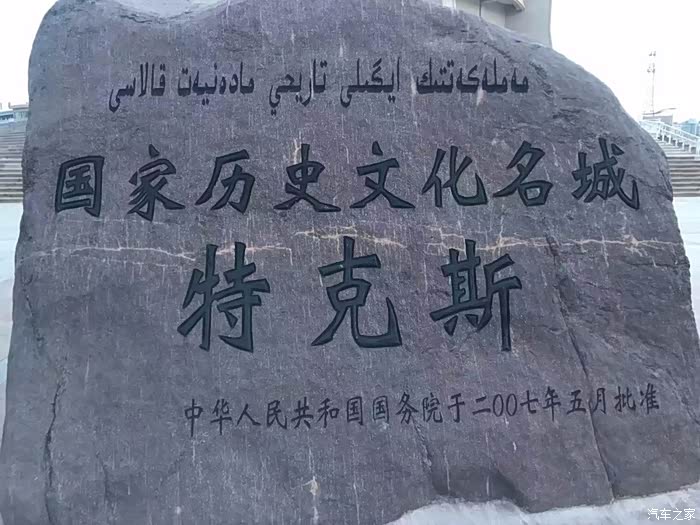 مەملەكەتتىك ايگىلى تاريحي مادەنيەت قالاسى
国家历史文化名城
特克斯
中华人民共和国国务院于二〇〇七年五月批准
汽车之家